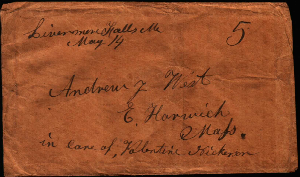 Livermore Falls Me
May 14
5
Andrew J West
E. Harwich
Mass.
in care of, Valentine Nickerson